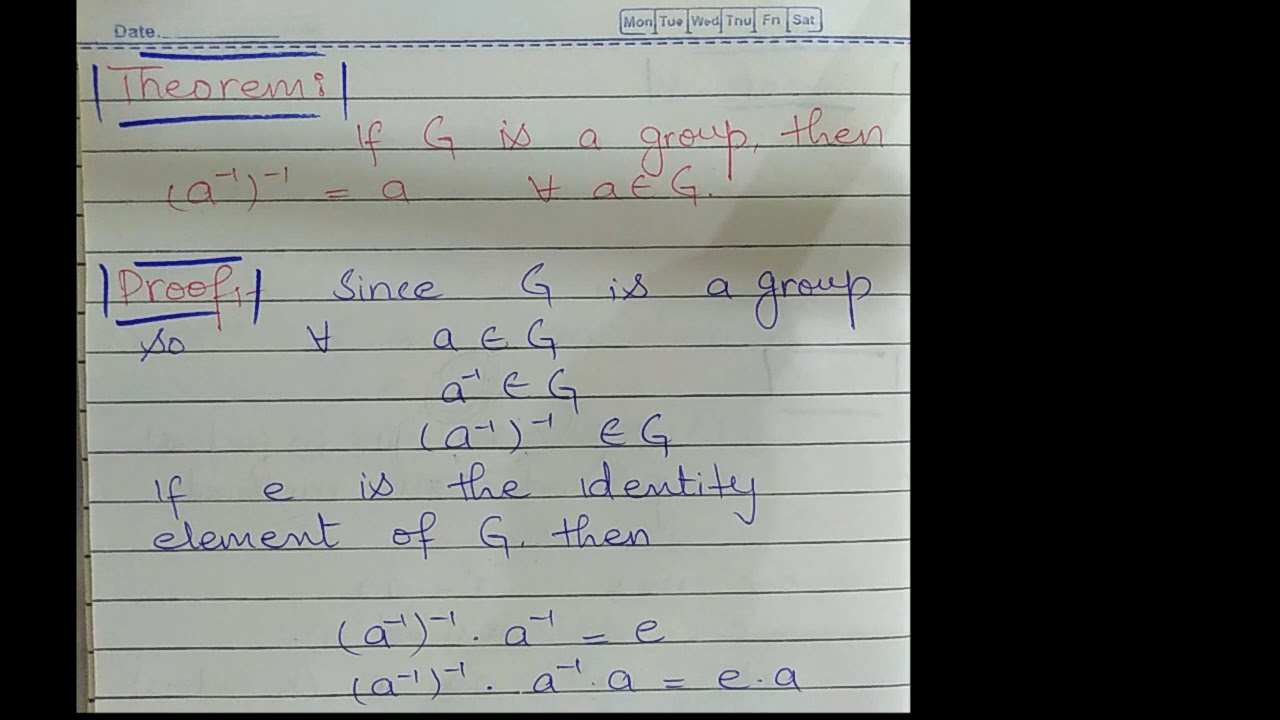 Date.
Mon Tue Wed Thu Fri Sat
Theorem:
If G is a group, then
(a⁻¹)⁻¹ = a ∀ a ∈ G.
Proof:-
Since G is a group
so ∀ a ∈ G
a⁻¹ ∈ G
(a⁻¹)⁻¹ ∈ G
If e is the identity
element of G, then
(a⁻¹)⁻¹ . a⁻¹ = e
(a⁻¹)⁻¹ . a⁻¹ . a = e . a